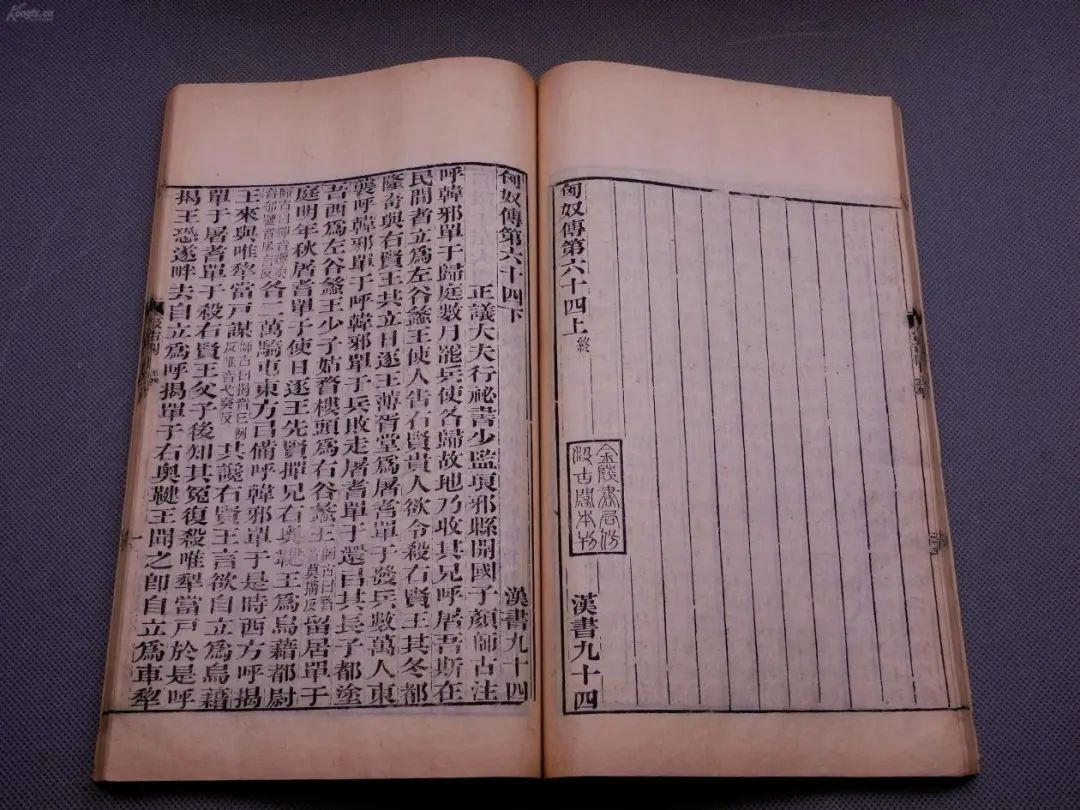 匈奴傳第六十四上 終 漢書九十四
金陵書局仿
汲古閣本刊
匈奴傳第六十四下 漢書九十四
正議大夫行祕書少監琅邪縣開國子顏師古注
呼韓邪單于歸庭數月罷兵使各歸故地乃收其兄呼屠吾斯在
民間者立爲左谷蠡王使人告右賢貴人欲令殺右賢王其冬都
隆奇與右賢王共立日逐王薄胥堂爲屠耆單于發兵數萬人東
襲呼韓邪單于呼韓邪單于兵敗走屠耆單于還㠯其長子都塗
吾西爲左谷蠡王少子姑瞀樓頭爲右谷蠡王師古曰瞀音莫搆反留居單于
庭明年秋屠耆單于使日逐王先賢撣兄右奧鞬王爲烏藉都尉
師古曰撣音纏奧音郁鞬音居言反各二萬騎屯東方㠯備呼韓邪單于是時西方呼揭
王來與唯犂當戸謀師古曰揭音巨例反唯音弋癸反共讒右賢王言欲自立爲烏藉
單于屠耆單于殺右賢王父子後知其冤復殺唯犂當戸於是呼
揭王恐遂畔去自立爲呼揭單于右奧鞬王聞之卽自立爲車犂
Kongfz.cn